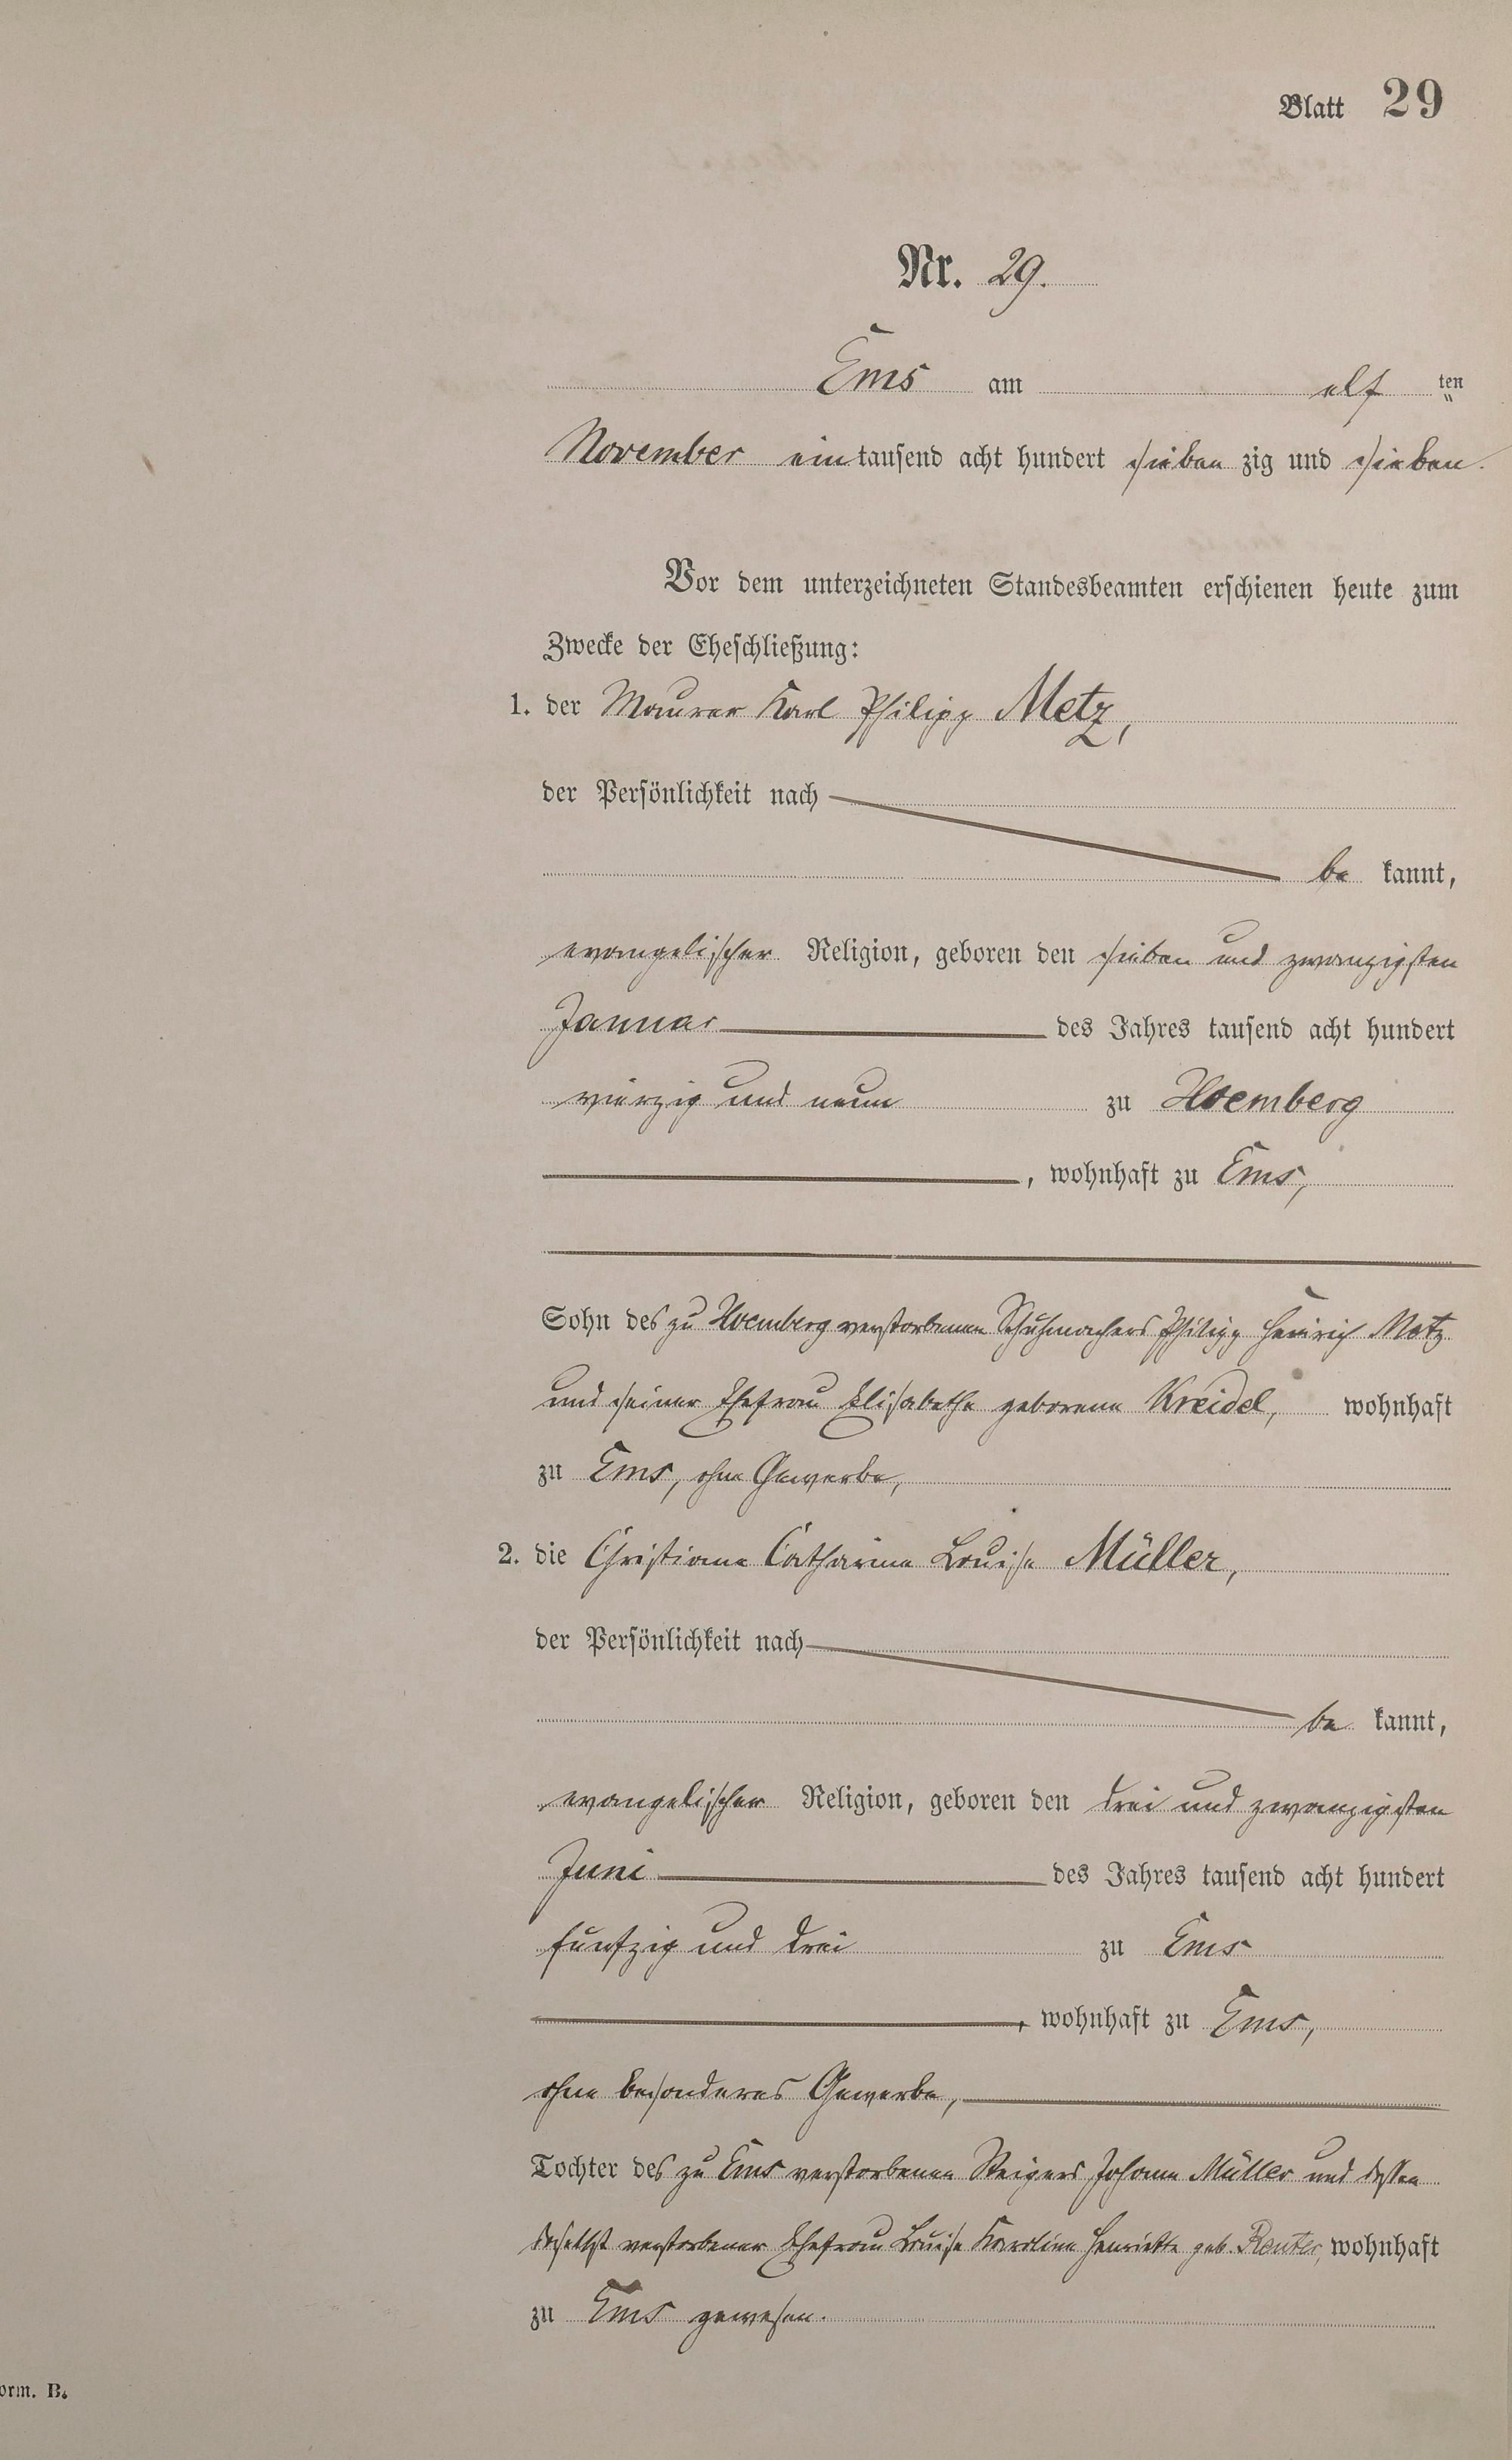 Blatt 29
Nr. 29.
Ems am elf ten
November ein tausend acht hundert sieben zig und sieben.
Vor dem unterzeichneten Standesbeamten erschienen heute zum
Zwecke der Eheschließung:
1. der Maurer Karl Philipp Metz,
der Persönlichkeit nach
be kannt,
evangelischer Religion, geboren den sieben und zwanzigsten
Januar des Jahres tausend acht hundert
vierzig und neun zu Hoemberg
, wohnhaft zu Ems,
Sohn des zu Hoemberg verstorbenen Schuhmachers Philipp Heinrich Metz
und seiner Ehefrau Elisabethe geborene Kreidel, wohnhaft
zu Ems, ohne Gewerbe,
2. die Christiane Catharine Louise Müller,
der Persönlichkeit nach
be kannt,
evangelischer Religion, geboren den drei und zwanzigsten
Juni des Jahres tausend acht hundert
fünfzig und drei zu Ems
, wohnhaft zu Ems,
ohne besonderes Gewerbe,
Tochter des zu Ems verstorbenen Steigers Johann Müller und dessen
daselbst verstorbener Ehefrau Louise Karoline Henriette geb. Reuter, wohnhaft
zu Ems gewesen.
orm. B.